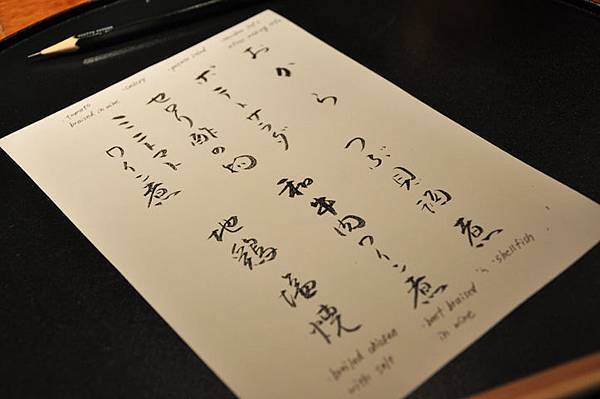 おから
ポテトサラダ
セロリ酢の物
ミニトマト
ワイン煮
つぶ貝酒煮
和牛肉ワイン煮
地鶏塩焼
after making tofu
potato salad
celery
tomato
braised in wine
shellfish
beef braised
in wine
broiled chicken
with salt